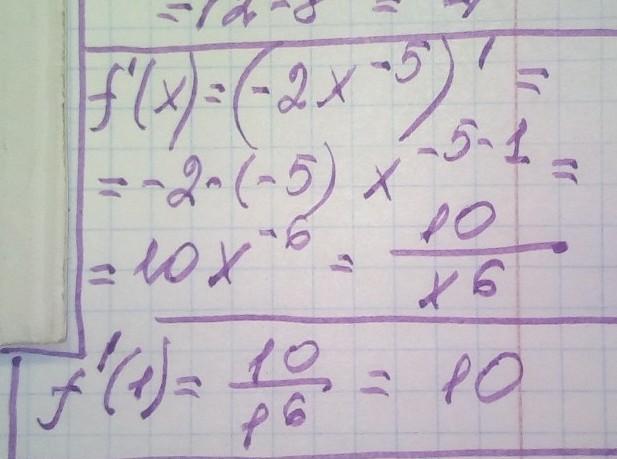 =12-8 = 4
f'(x)=(-2x^{-5})' =
=-2·(-5) x^{-5-1} =
=10x^{-6} = \frac{10}{x^6}
f'(1)= \frac{10}{1^6} = 10